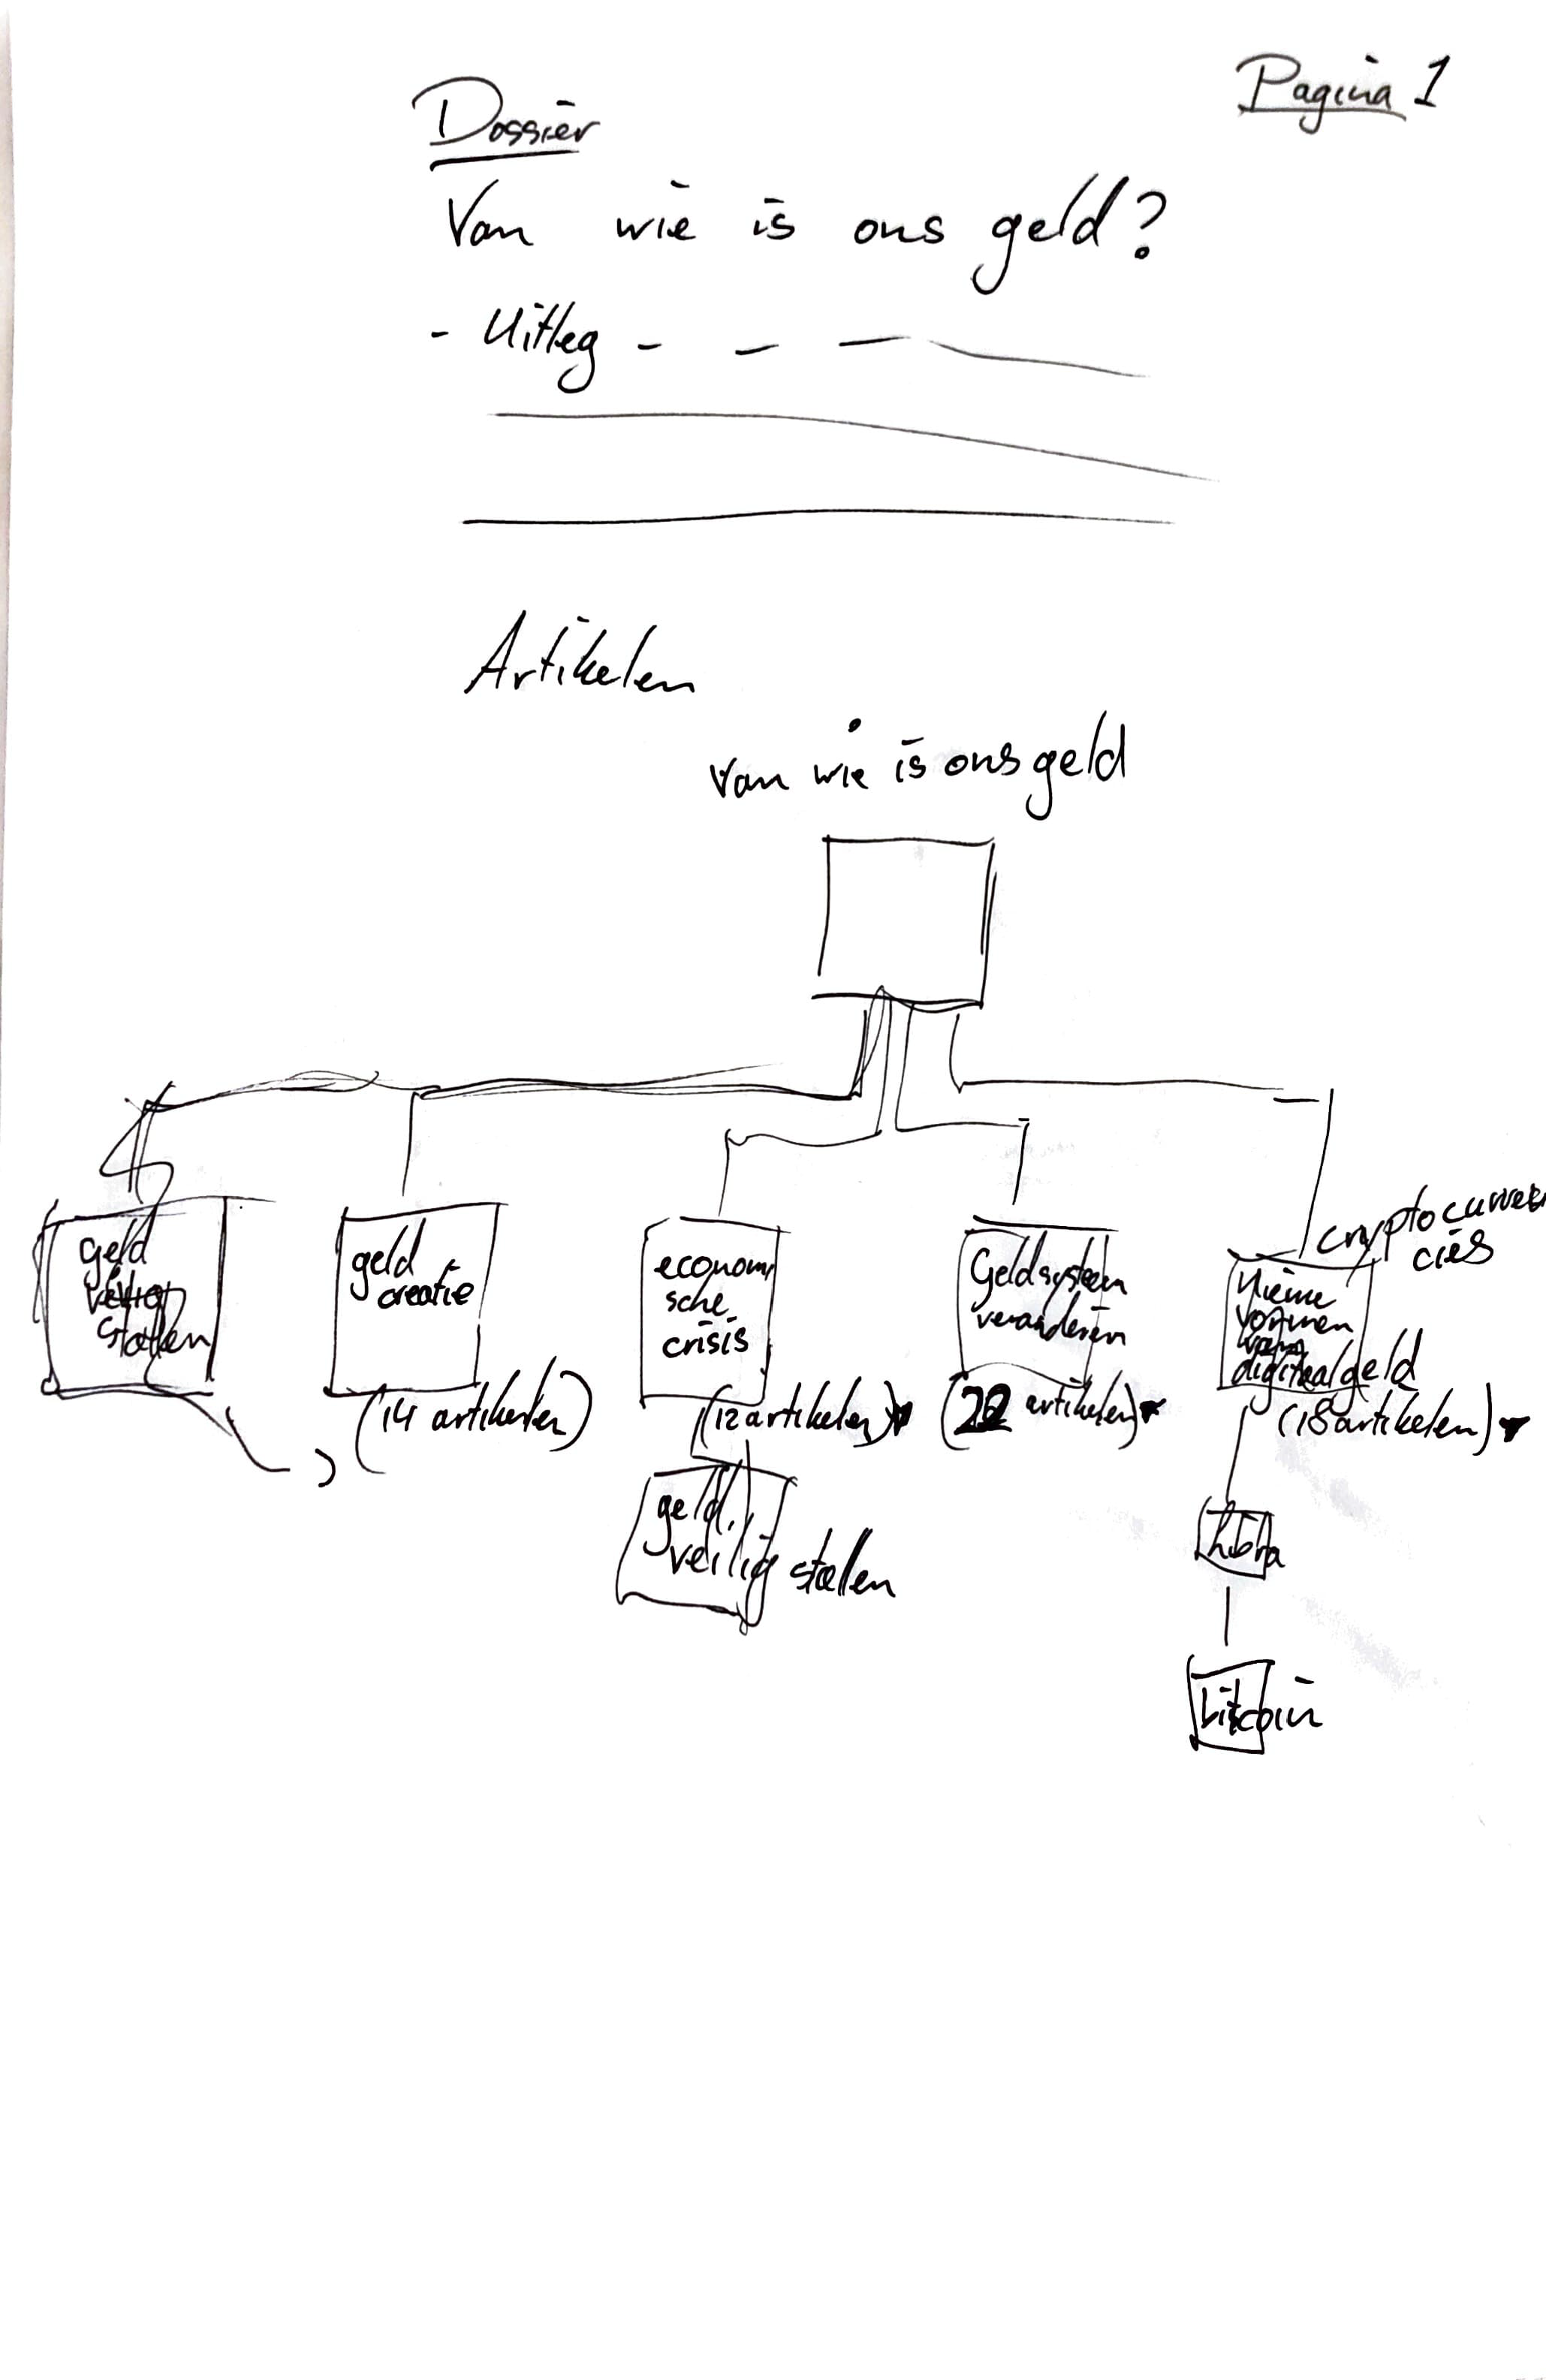 Pagina 1
Dossier
Van wie is ons geld?
- Uitleg -
Artikelen
van wie is ons geld
geld
veilig
stallen
geld
creatie
(14 artikelen)
economi
sche
crisis
(12 artikelen)
geld
veilig stallen
Geldsysteem
veranderen
(22 artikelen)
cryptocurren
cies
Nieuwe
vormen
van
digitaal geld
(18 artikelen)
Libra
bitcoin